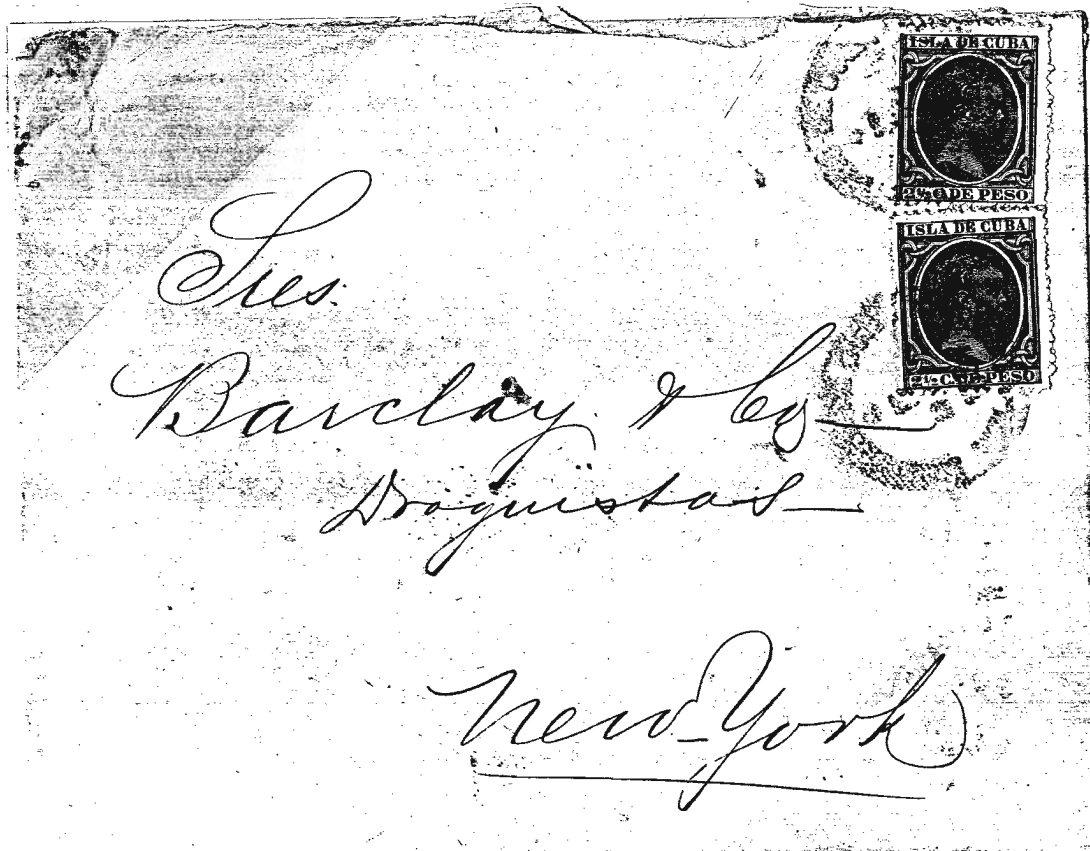 ISLA DE CUBA
2½ C. DE PESO
ISLA DE CUBA
2½ C. DE PESO
Sres.
Barclay & Co
Droguistas
New-York